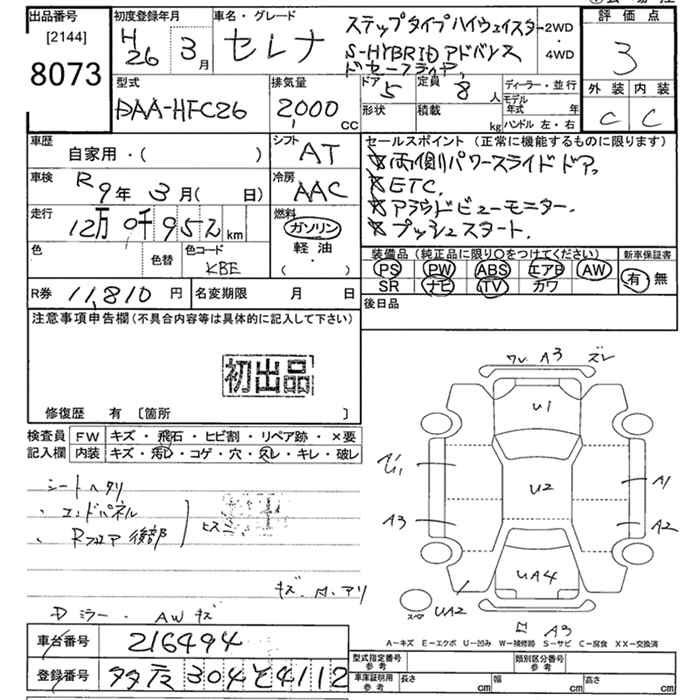 出品番号
[2144]
8073
初度登録年月
H 26 3月
車名・グレード
セレナ
ステップタイプハイウェイスター
S-HYBRID アドバンス
ドセーフティP,
2WD
・
4WD
評価点
3
外装 内装
C C
型式
DAA-HFC26
排気量
2,000 CC
ドア
5
定員
8人
形状
積載
kg
ディーラー・並行
モデル年式 年
ハンドル 左・右
車歴
自家用・( )
シフト
AT
車検
R9年 3月( 日)
冷房
AAC
走行
12万0千952km
燃料
ガソリン
軽油
( ・ )
色
色替
色コード
KBE
R券 11,810円
名変期限 月 日
セールスポイント (正常に機能するものに限ります)
両側パワースライドドア,
ETC,
アラウンドビューモニター,
プッシュスタート.
装備品 (純正品に限り○をつけてください)
PS PW ABS エアB AW
SR ナビ TV カワ
新車保証書
有 無
後日品
注意事項申告欄(不具合内容等は具体的に記入して下さい)
初出品
修復歴 有 [箇所 ]
検査員記入欄
FW キズ・飛石・ヒビ割・リペア跡・×要
内装 キズ・汚レ・コゲ・穴・スレ・キレ・破レ
シートヘタリ
、エンドパネル
、Rフロア後部
キズ.凹.アリ
Dミラー. AWキズ
ワレ A3 ズレ
U1
U2
A1
A3
A2
UA4
UA2
スペア
凹 A3
A-キズ E-エクボ U-凹み W-補修跡 S-サビ C-腐食 XX-交換済
車台番号 216494
登録番号 多摩 304 そ 4112
型式指定番号
参考
類別区分番号
参考
車庫証明用
参考
長さ cm
幅 cm
高さ cm